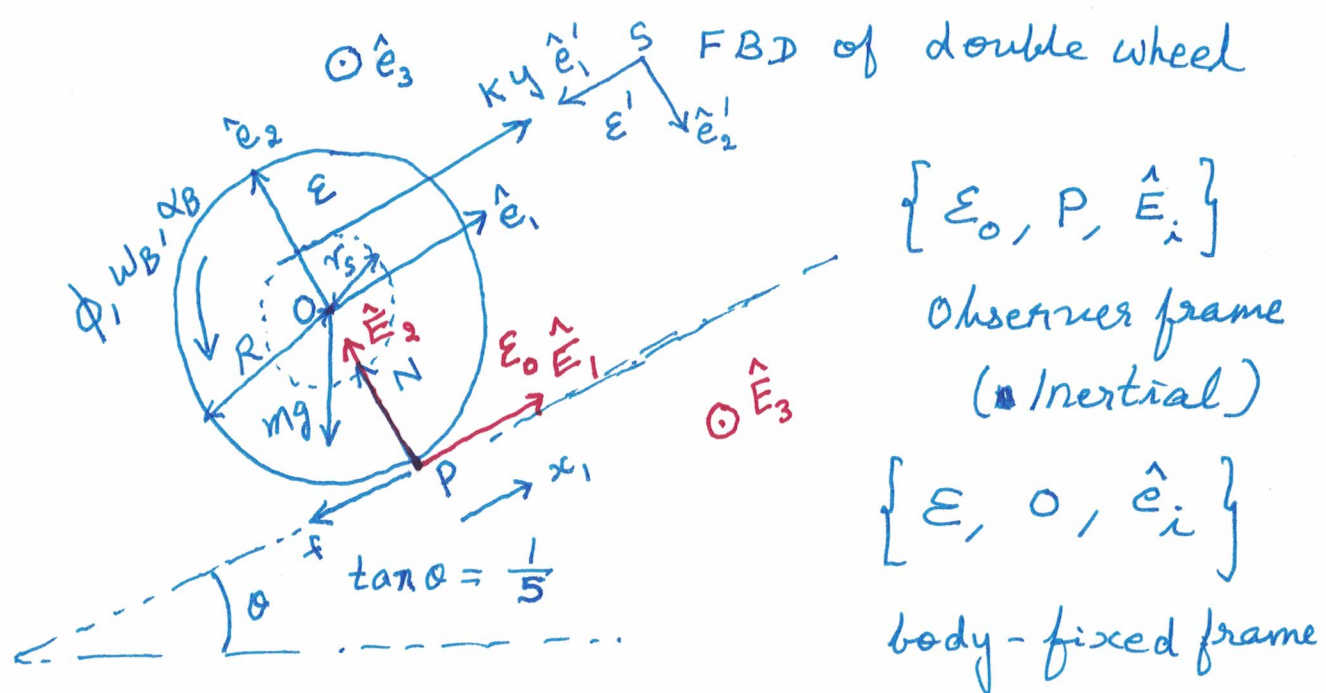 ⊙ ê₃
ky
ê₁′
S
FBD of double wheel
ε′
ê₂′
ê₂
ε
ê₁
ϕ, ω_B, α_B
r_s
O
R
Ê₂
N
ε₀ Ê₁
mg
⊙ Ê₃
P
x₁
f
tan θ = 1/5
θ
{ ε₀, P, Êᵢ }
Observer frame
(Inertial)
{ ε, O, êᵢ }
body-fixed frame